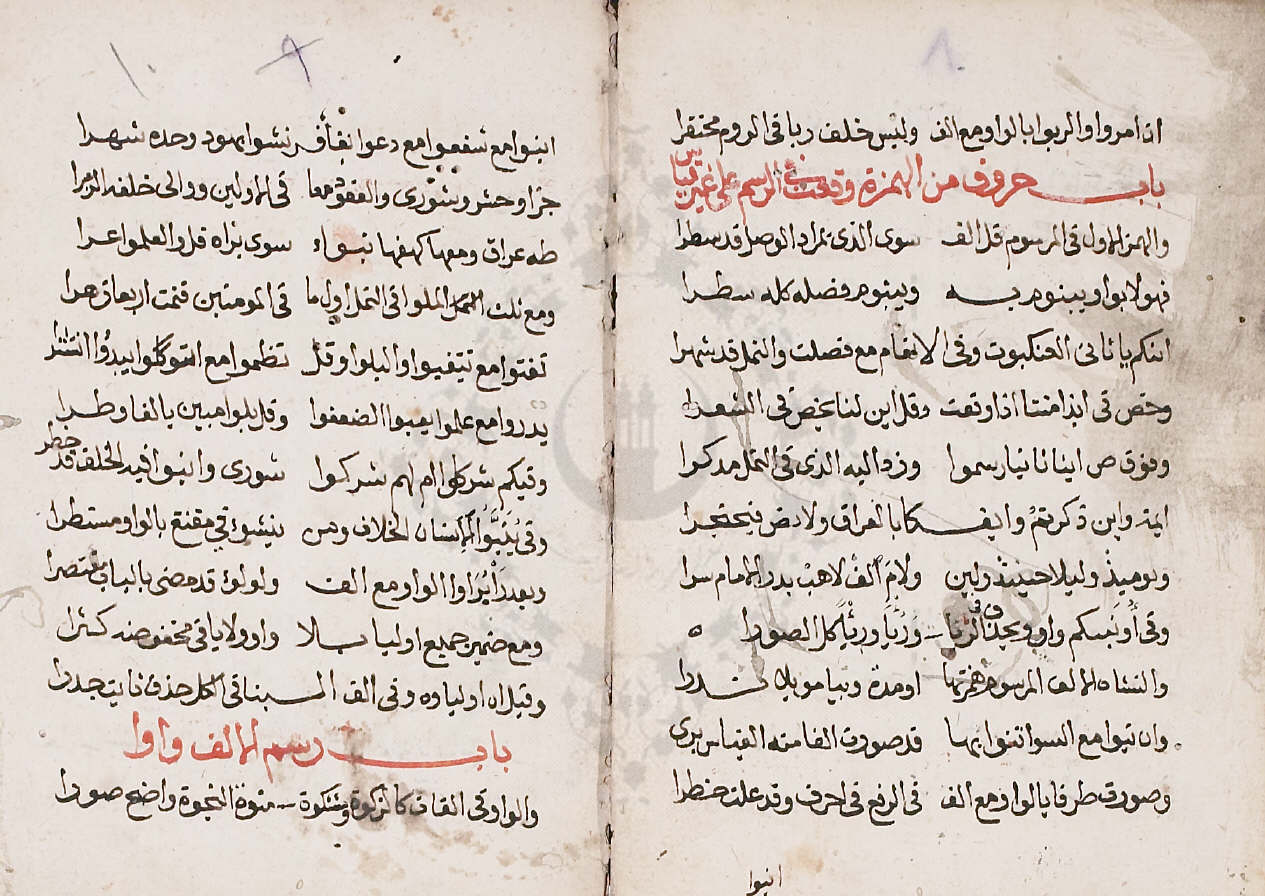 ان امروا والربوا بالواو مع الف وليس خلف ربا في الروم محتقرا
باب حروف من الهمزة وقعت في الرسم على غير قياس
والهمز الاول في المرسوم قل الف سوى الذي بمراد الوصل قد سطرا
فهولا بواو يبنوم به ويبنوم فصله كله سطرا
اينكم يا ثاني العنكبوت وفي الانعام مع فصلت والنمل قد شهرا
وخص في ايذا متنا اذا وقعت وقل اين لنا يخص في الشعرا
وفوق ص اينا ثانيا رسموا وزد اليه الذي في النمل مدكرا
ايمة واين ذكرتم وايفكا بالعراق ولا نص فيحتجرا
ويوميذ وليلا حينيذ ولين ولام الف لاهب بدر الامام سرا
وفي اونبيكم واو ويحذف في الرءيا وريا ورئيا كل الصورا
والنشاة الالف المرسوم همزتها او مدة وبيا مويلا ندرا
وان تبوا مع السواي تنوا بها قد صورت الفا منه القياس يرى
وصورت طرفا بالواو مع الف في الرفع في احرف وقد علت خطرا
انبوا
انبوا مع شفعوا مع دعوا بغافر نشوا بهود وحده شهرا
جزاو حشر وشورى والعقود معا في الاولين ووالى خلفه الزمرا
طه عراق ومعها كهفها نبواء سوى براه قل والعلموا عرا
ومع ثلث الملوا في النمل اول ما في المومنين فتمت اربعا زهرا
تفتوا مع يتفيوا والبلوا وقل تظموا مع اتوكوا يبدوا انتشرا
يدروا مع علموا يعبوا الضعفوا وقل بلوا مبين بالغا وطرا
وفيكم شركوا ام لهم شركوا شورى وانبوا فيه الخلف قد خطر
وفي ينبوا الانسان الخلاف ومن ينشوا في مقنع بالواو مستطرا
وبعد را براوا الواو مع الف ولولوا قد مضى بالباب معتصرا
ومع ضمير جميع اوليا بلا واو ولا يا في مخفوضه كثرا
وقيل ان اولياوه وفي الف البنا في الكل حذف ثابت جدرا
باب رسم الالف واوا
والواو في الفات كالزكوة ومشكوة منوة النجوة واضح صورا